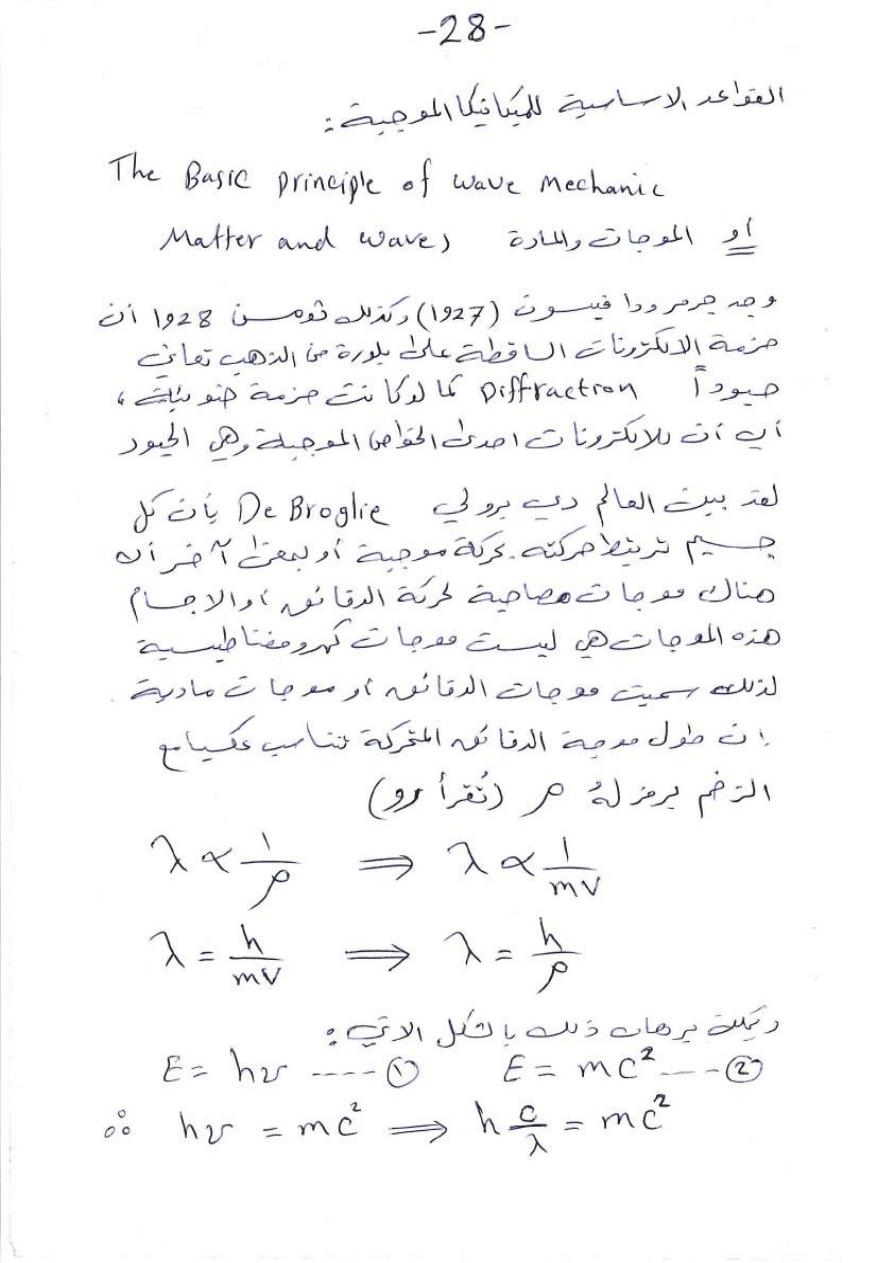 -28-
القواعد الاساسية للميكانيكا الموجبة :
The Basic principle of wave Mechanic
أو الموجات والمادة Matter and waves
وجد جرمر ودافيسون (1927) وكذلك ثومسن 1928 أن
حزمة الالكترونات الساقطة على بلورة من الذهب تعاني
حيوداً Diffraction كما لو كانت حزمة ضوئية ،
أي أن للالكترونات احدى الخواص الموجية وهي الحيود
لقد بين العالم دي برولي De Broglie بأن كل
جسيم ترتبط حركته بحركة موجبة أو بمعنى آخر أن
هناك موجات مصاحبة لحركة الدقائق أو الاجسام
هذه الموجات هي ليست موجات كهرومغناطيسية
لذلك سميت موجات الدقائق أو موجات مادية .
إن طول موجة الدقائق المتحركة تتناسب عكسيا مع
الزخم يرمز لهُ ρ (تُقرأ رو)
λ ∝ 1/ρ ⟹ λ ∝ 1/mv
λ = h/mv ⟹ λ = h/ρ
ويمكن برهان ذلك بالشكل الاتي :
E = hν ---- ① E = mc² --- ②
∴ hν = mc² ⟹ h c/λ = mc²